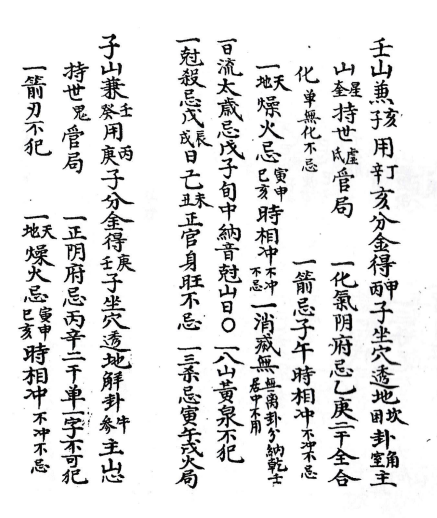 壬山兼子亥用辛丁亥分金得丙甲子坐穴透地坎困卦角室主
山星奎持世虛氐管局　一化氣阴府忌乙庚二干全合
化单無化不忌　一箭忌子午時相冲不冲不忌
一天地燥火忌寅申巳亥時相冲不冲不忌　一消滅無
一日流太歲忌戊子旬中納音尅山日〇　一八山黃泉不犯
一尅殺忌戊辰戌日己未丑正官身旺不忌　一三杀忌寅午戌火局
子山兼壬癸用丙庚子分金得庚壬子坐穴透地解卦牛参主山忌
持世鬼管局　一正阴府忌丙辛二干单一字不可犯
一箭刃不犯　一天地燥火忌寅申巳亥時相冲不冲不忌